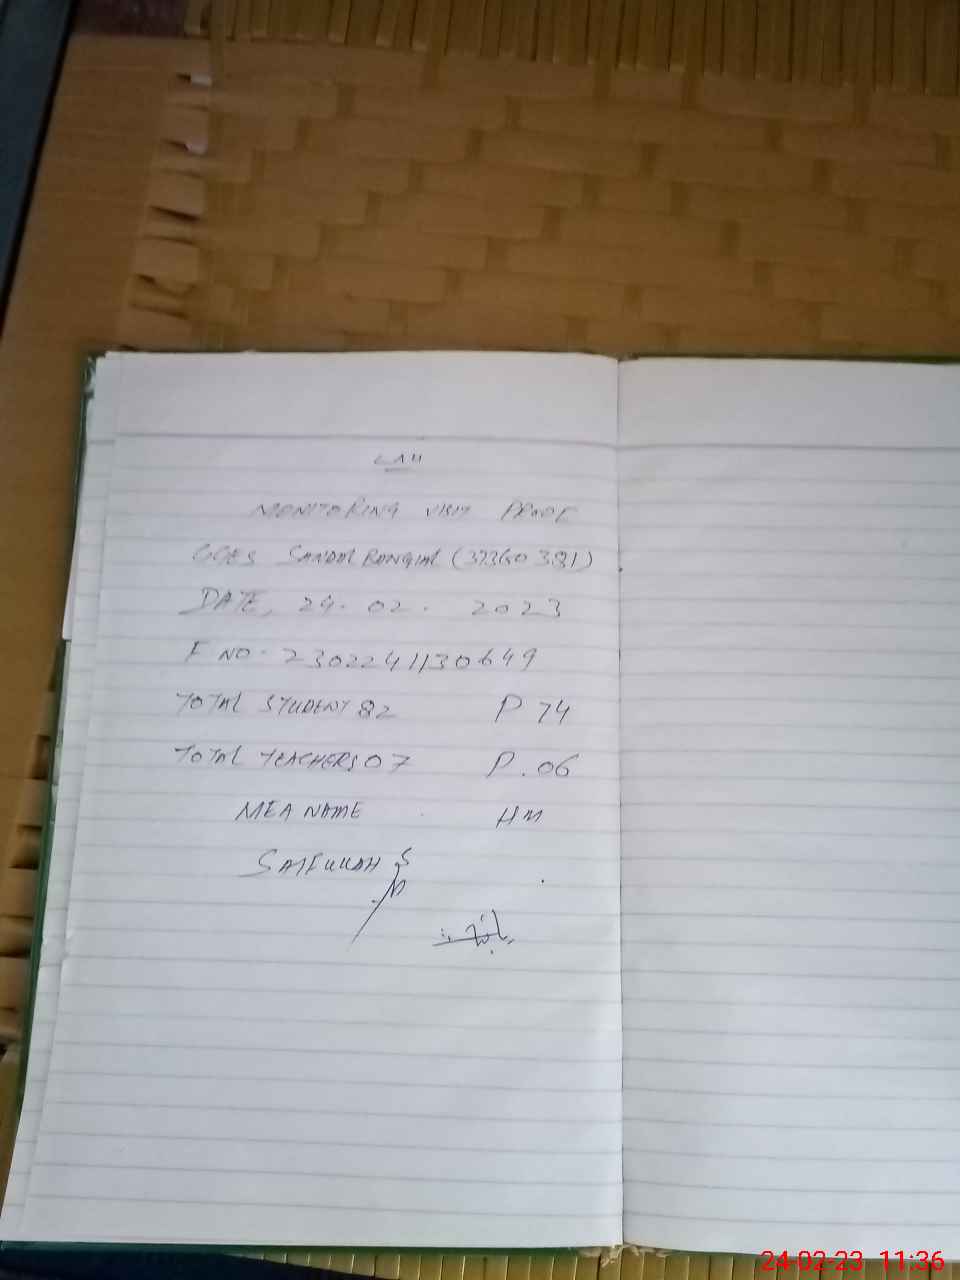 MONITORING VISIT PROOF
GGES SANDAL RANGIAL (37360381)
DATE, 24. 02. 2023
F NO. 2302241130649
TOTAL STUDENT 82 P 74
TOTAL TEACHERS 07 P. 06
MEA NAME HM
SAIFULLAH
24-02-23 11:36